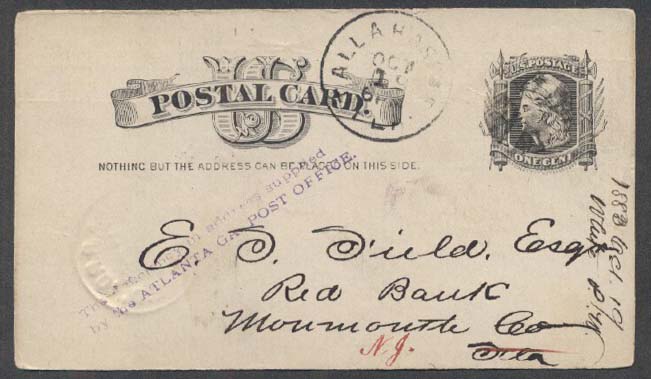 US
POSTAL CARD.
NOTHING BUT THE ADDRESS CAN BE PLACED ON THIS SIDE.
U.S. POSTAGE
ONE CENT
TALLAHASSEE
OCT
FLA.
address supplied
by the ATLANTA GA. POST OFFICE.
E. D. Field, Esq
Red Bank
Monmouth Co
Fla
N.J.
1883 Oct. 19